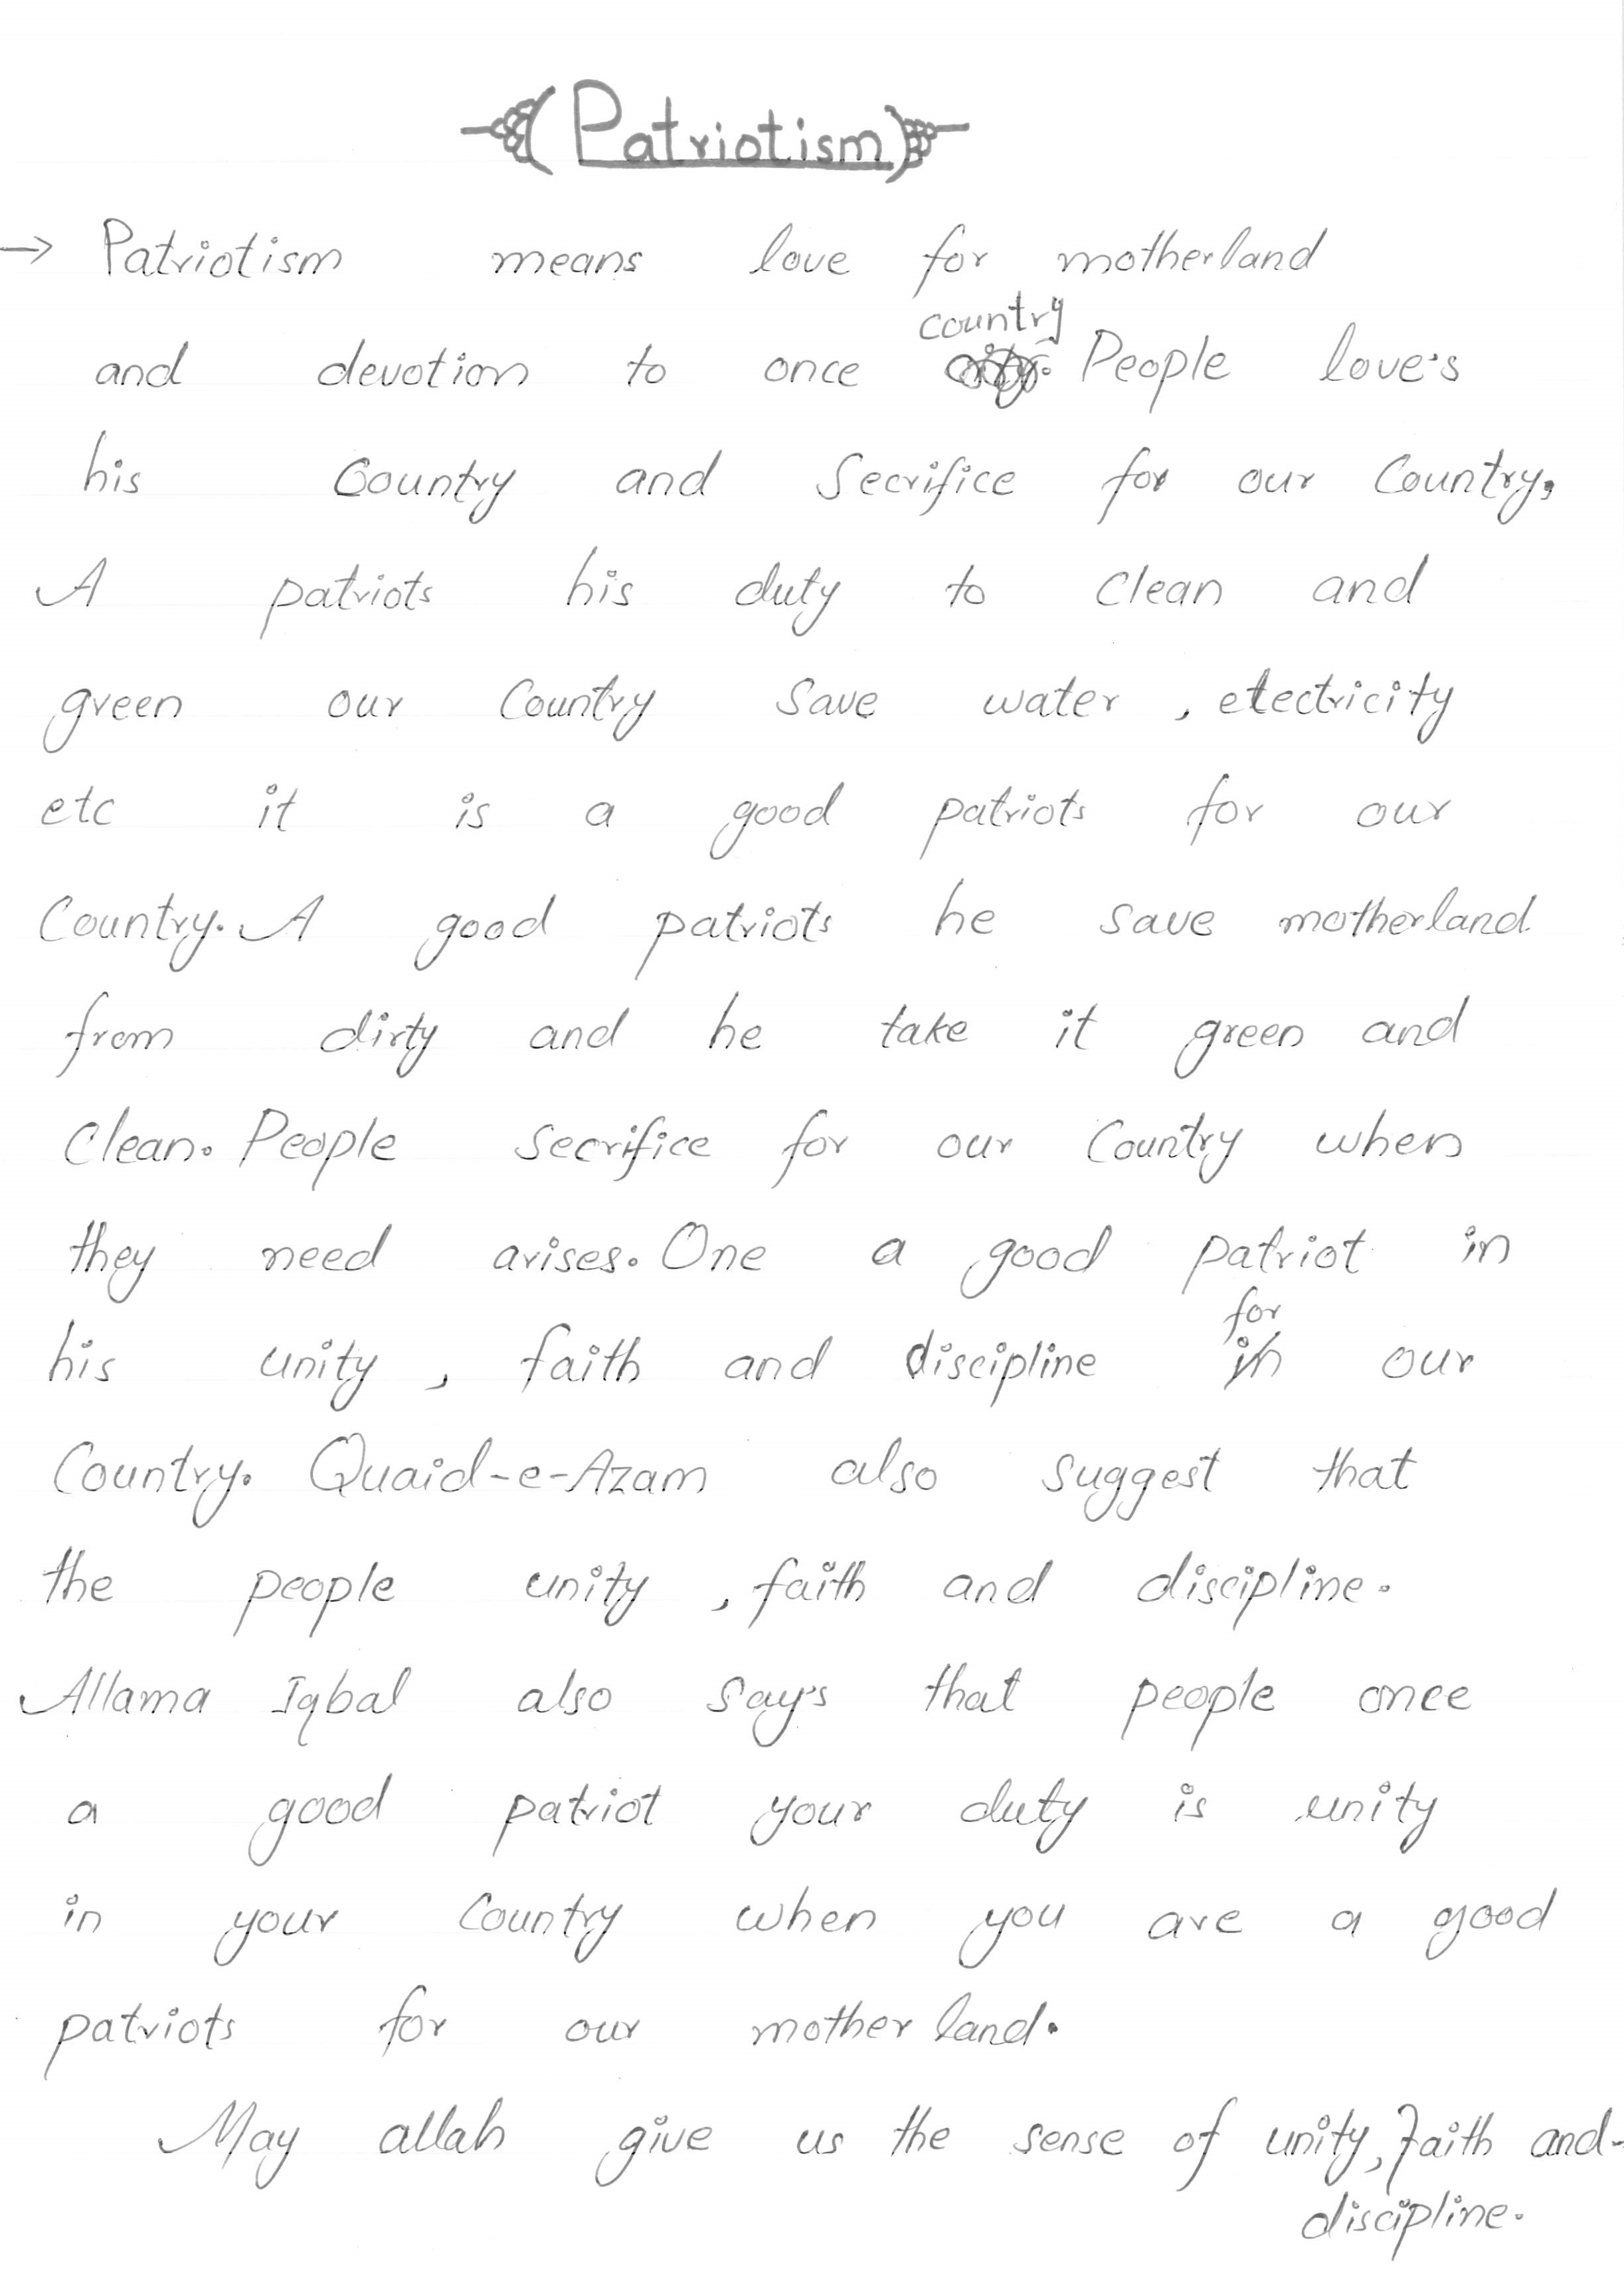 (Patriotism)
→ Patriotism means love for motherland
country
and devotion to once People love's
his Country and Secrifice for our Country.
A patriots his duty to clean and
green our Country Save water , electricity
etc it is a good patriots for our
Country. A good patriots he save motherland
from dirty and he take it green and
Clean. People secrifice for our Country when
they need arises. One a good patriot in
for
his unity , faith and discipline in our
Country. Quaid-e-Azam also suggest that
the people unity , faith and discipline.
Allama Iqbal also say's that people once
a good patriot your duty is unity
in your Country when you are a good
patriots for our mother land.
May allah give us the sense of unity, faith and-
discipline.